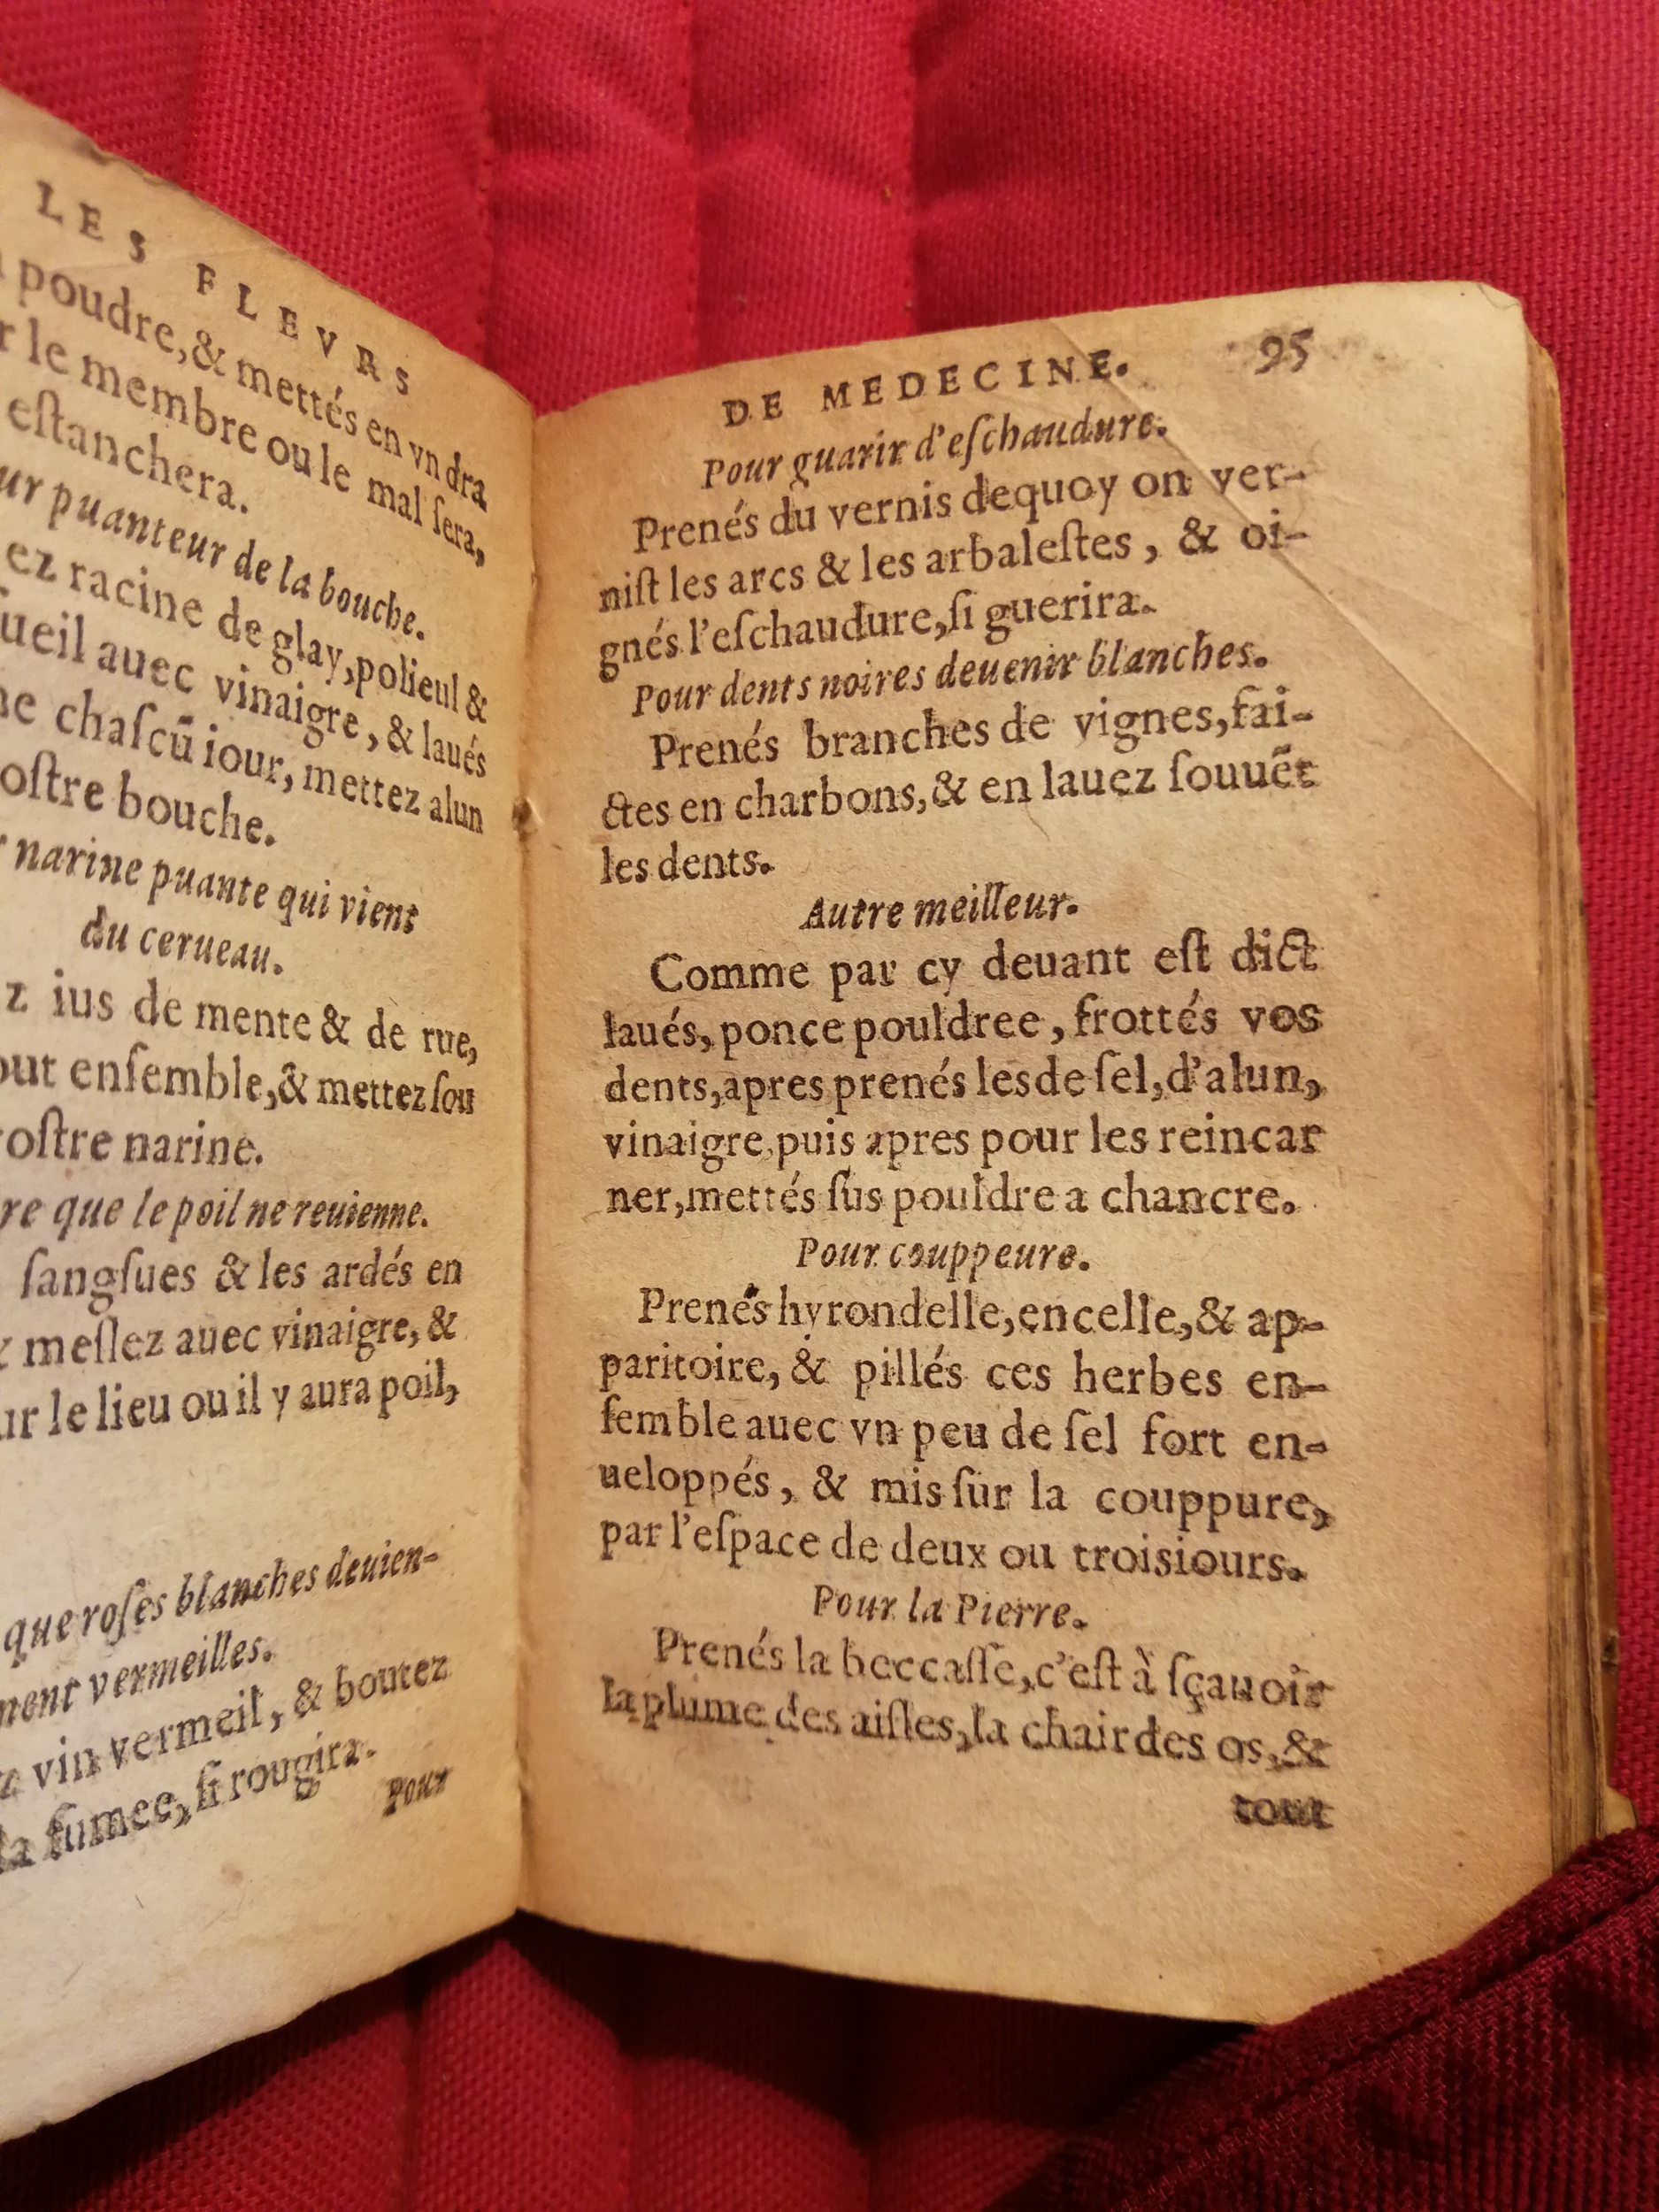 LES FLEVRS
poudre, & mettés en vn dra
le membre ou le mal ſera,
eſtanchera.
puanteur de la bouche.
racine de glay, polieul &
auec vinaigre, & laués
chaſcū iour, mettez alun
bouche.
narine puante qui vient
du cerueau.
ius de mente & de rue,
enſemble, & mettez ſou
narine.
que le poil ne reuienne.
ſangſues & les ardés en
meſlez auec vinaigre, &
le lieu ou il y aura poil,
que roſes blanches deuien-
vermeilles.
vin vermeil, & boutez
la fumee, ſi rougira.
Pour
DE MEDECINE. 95
Pour guarir d'eſchaudure.
Prenés du vernis dequoy on ver-
niſt les arcs & les arbaleſtes, & oi-
gnés l'eſchaudure, ſi guerira.
Pour dents noires deuenir blanches.
Prenés branches de vignes, fai-
ctes en charbons, & en lauez ſouuēt
les dents.
Autre meilleur.
Comme par cy deuant eſt dict
laués, ponce pouldree, frottés vos
dents, apres prenés les de ſel, d'alun,
vinaigre, puis apres pour les reincar
ner, mettés ſus pouldre a chancre.
Pour couppeure.
Prenés hyrondelle, encelle, & ap-
paritoire, & pillés ces herbes en-
ſemble auec vn peu de ſel fort en-
ueloppés, & mis ſur la couppure,
par l'eſpace de deux ou trois iours.
Pour la Pierre.
Prenés la beccaſſe, c'eſt à ſçauoir
la plume des aiſles, la chair des os, &
tout